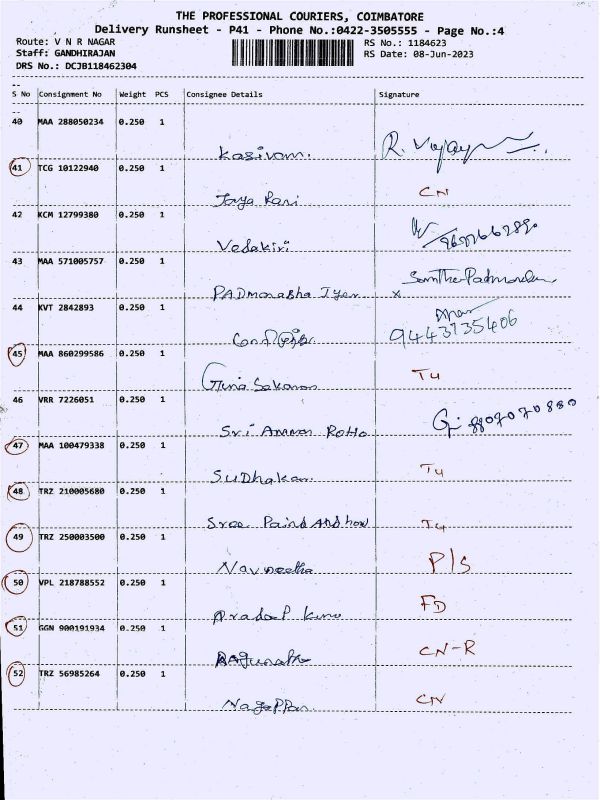 THE PROFESSIONAL COURIERS, COIMBATORE
Delivery Runsheet - P41 - Phone No.:0422-3505555 - Page No.:4
Route: V N R NAGAR RS No.: 1184623
Staff: GANDHIRAJAN RS Date: 08-Jun-2023
DRS No.: DCJB118462304
S No Consignment No Weight PCS Consignee Details Signature
40 MAA 288050234 0.250 1
Kasivam.
41 TCG 10122940 0.250 1
Jaya Rani CN
42 KCM 12799380 0.250 1
Vedakiri
43 MAA 571005757 0.250 1
PADmonabha Iyer x
44 KVT 2842893 0.250 1
9443735406
45 MAA 860299586 0.250 1
Guna Sekaran T4
46 VRR 7226051 0.250 1
Sri Amman 8807070880
47 MAA 100479338 0.250 1
SuDhakar. T4
48 TRZ 210005680 0.250 1
Sree T4
49 TRZ 250003500 0.250 1
Navneetha P/S
50 VPL 218788552 0.250 1
FD
51 GGN 900191934 0.250 1
CN-R
52 TRZ 56985264 0.250 1
Nagappan CN